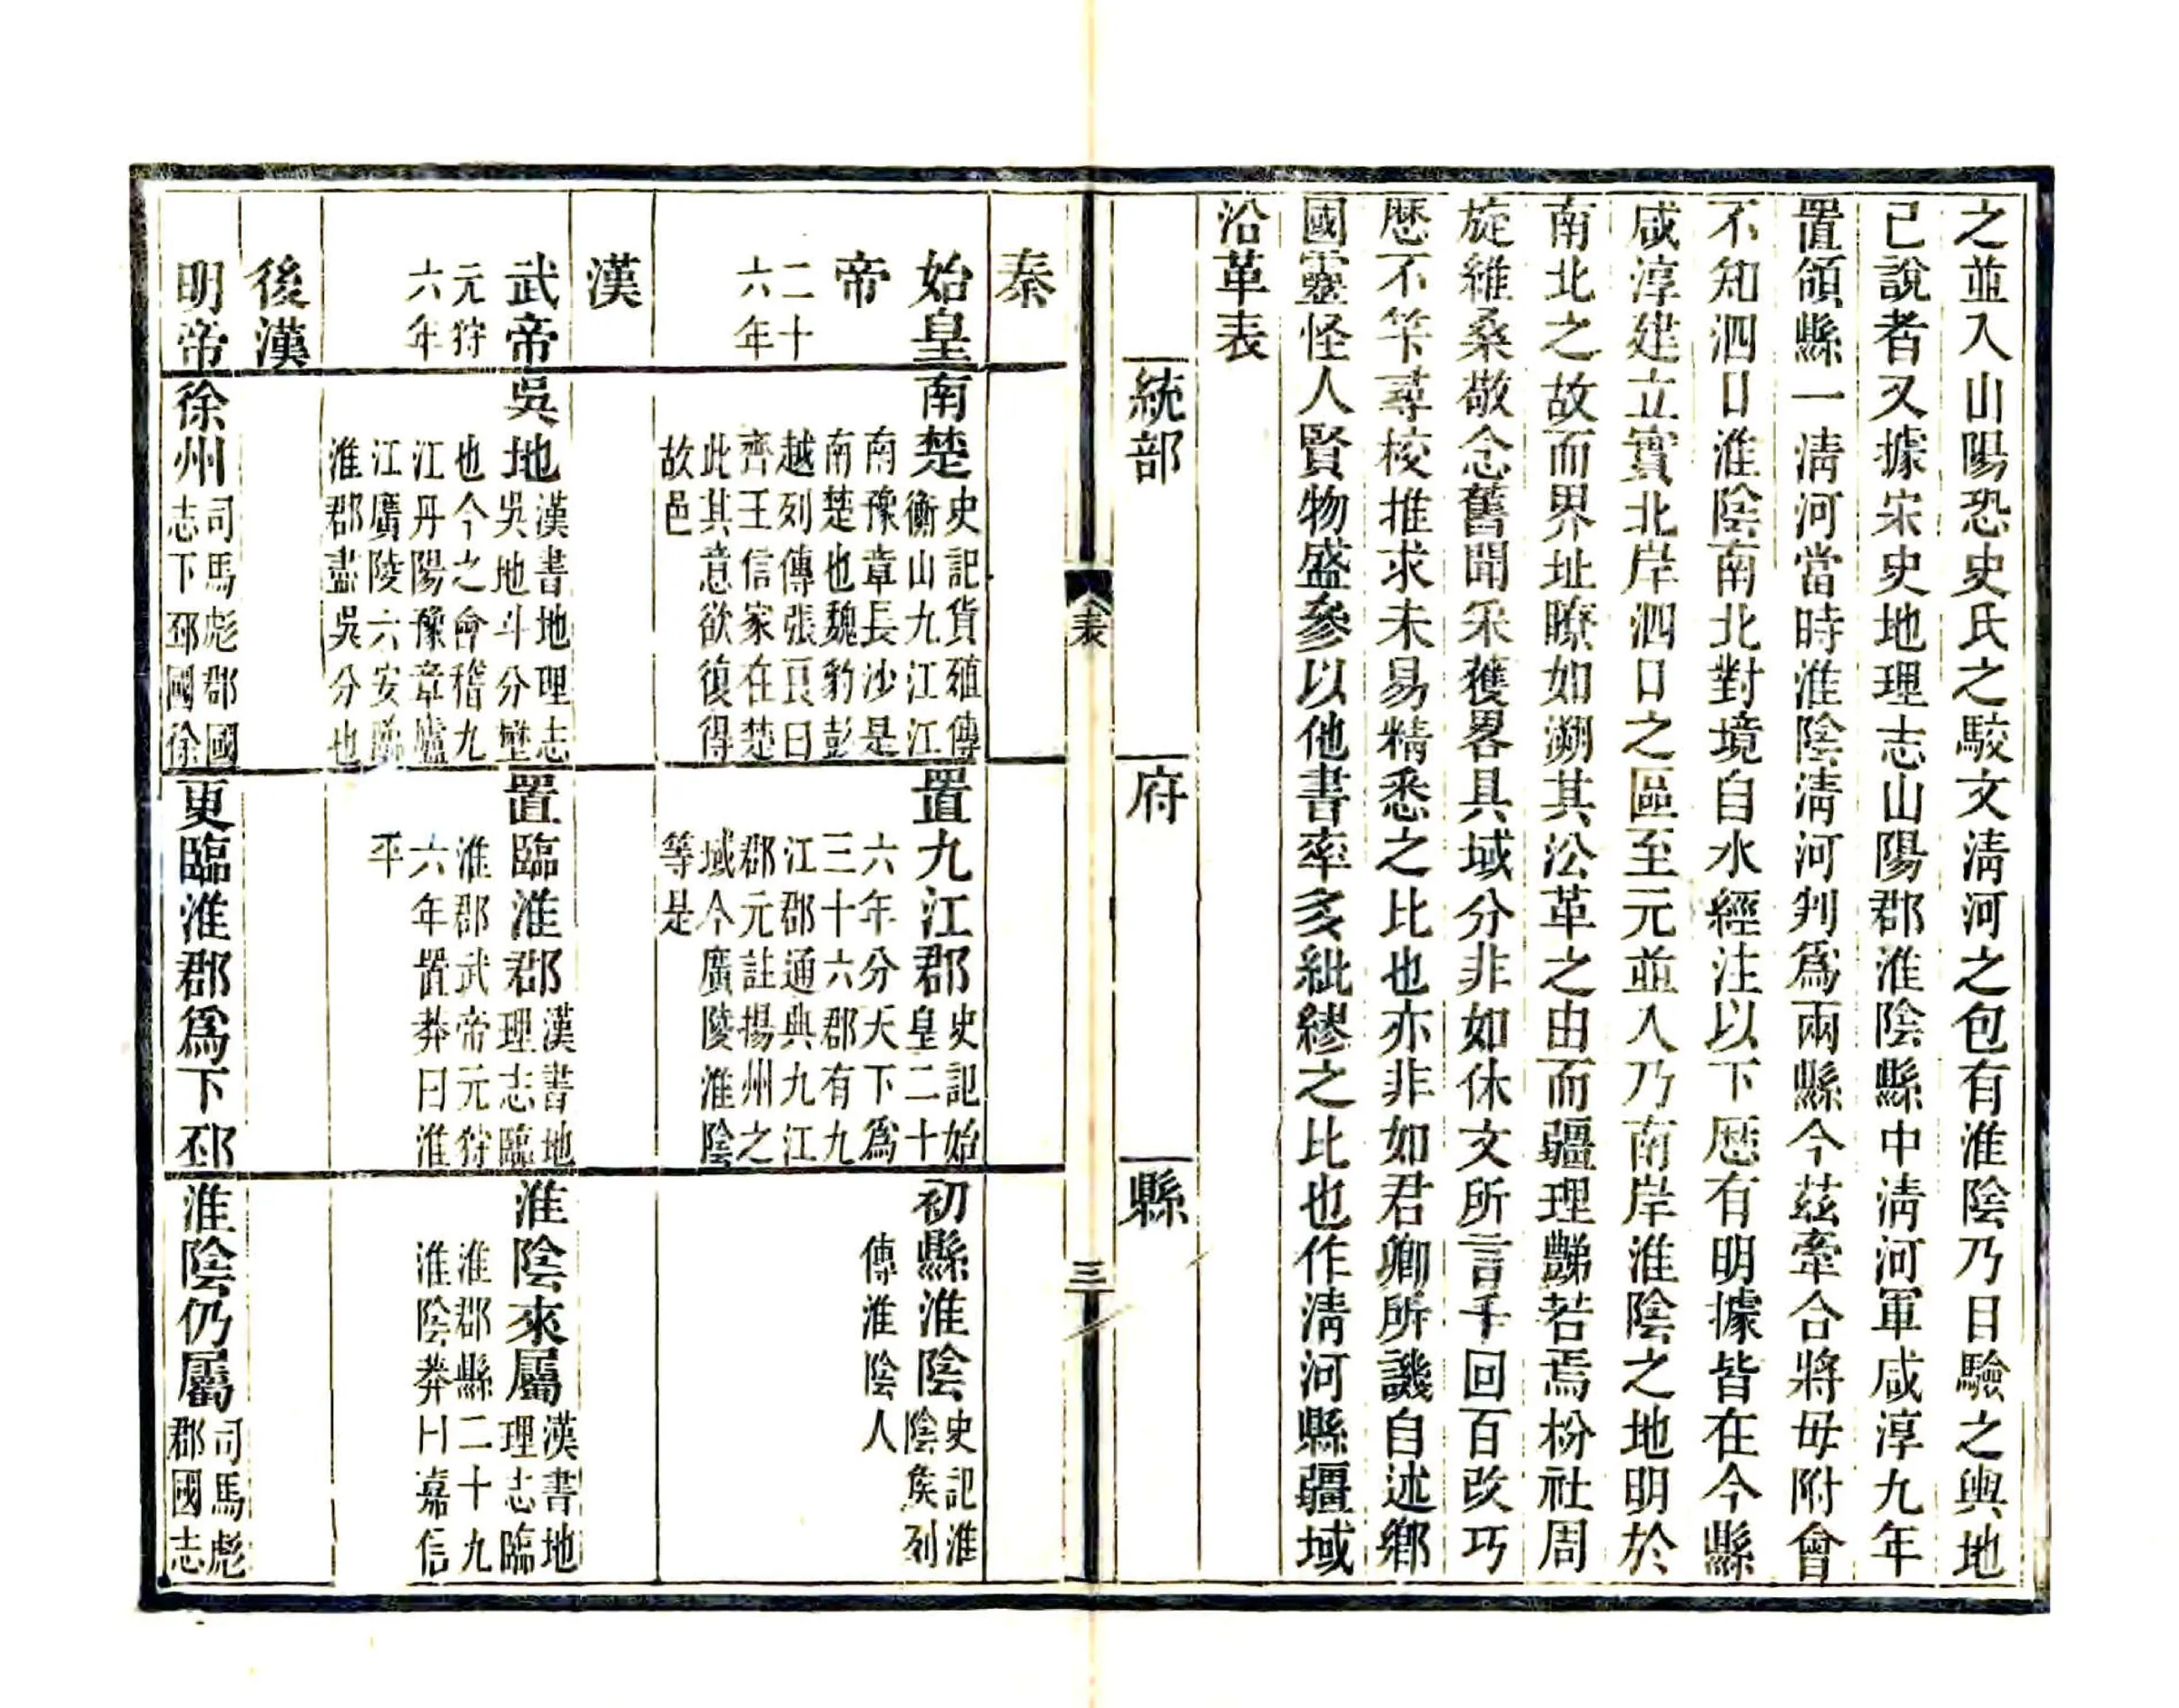 之並入山陽恐史氏之駮文淸河之包有淮陰乃目驗之輿地
己說者又據宋史地理志山陽郡淮陰縣中淸河軍咸淳九年
置領縣一淸河當時淮陰淸河判爲兩縣今茲牽合將毋附會
不知泗口淮陰南北對境自水經注以下歷有明據皆在今縣
咸淳建立實北岸泗口之區至元並入乃南岸淮陰之地明於
南北之故而界址瞭如溯其沿革之由而疆理豑若焉枌社周
旋維桑敬念舊聞采獲畧具域分非如休文所言千回百改巧
歷不筭尋校推求未易精悉之比也亦非如君卿所譏自述鄉
國靈怪人賢物盛參以他書率多紕繆之比也作淸河縣疆域
沿革表
統部
府
縣
表
三
秦
始皇
帝
二十
六年
南楚
史記貨殖傳
衡山九江江
南豫章長沙是
南楚也魏豹彭
越列傳張良曰
齊王信家在楚
此其意欲復得
故邑
置九江郡
史記始
皇二十
六年分天下爲
三十六郡有九
江郡通典九江
郡元註揚州之
域今廣陵淮陰
等是
初縣淮陰
史記淮
陰矦列
傳淮陰人
漢
武帝
元狩
六年
吳地
漢書地理志
吳地斗分壄
也今之會稽九
江丹陽豫章廬
江廣陵六安臨
淮郡盡吳分也
置臨淮郡
漢書地
理志臨
淮郡武帝元狩
六年置莽曰淮
平
淮陰來屬
漢書地
理志臨
淮郡縣二十九
淮陰莽曰嘉信
後漢
明帝
徐州
司馬彪郡國
志下邳國徐
更臨淮郡爲下邳
淮陰仍屬
司馬彪
郡國志